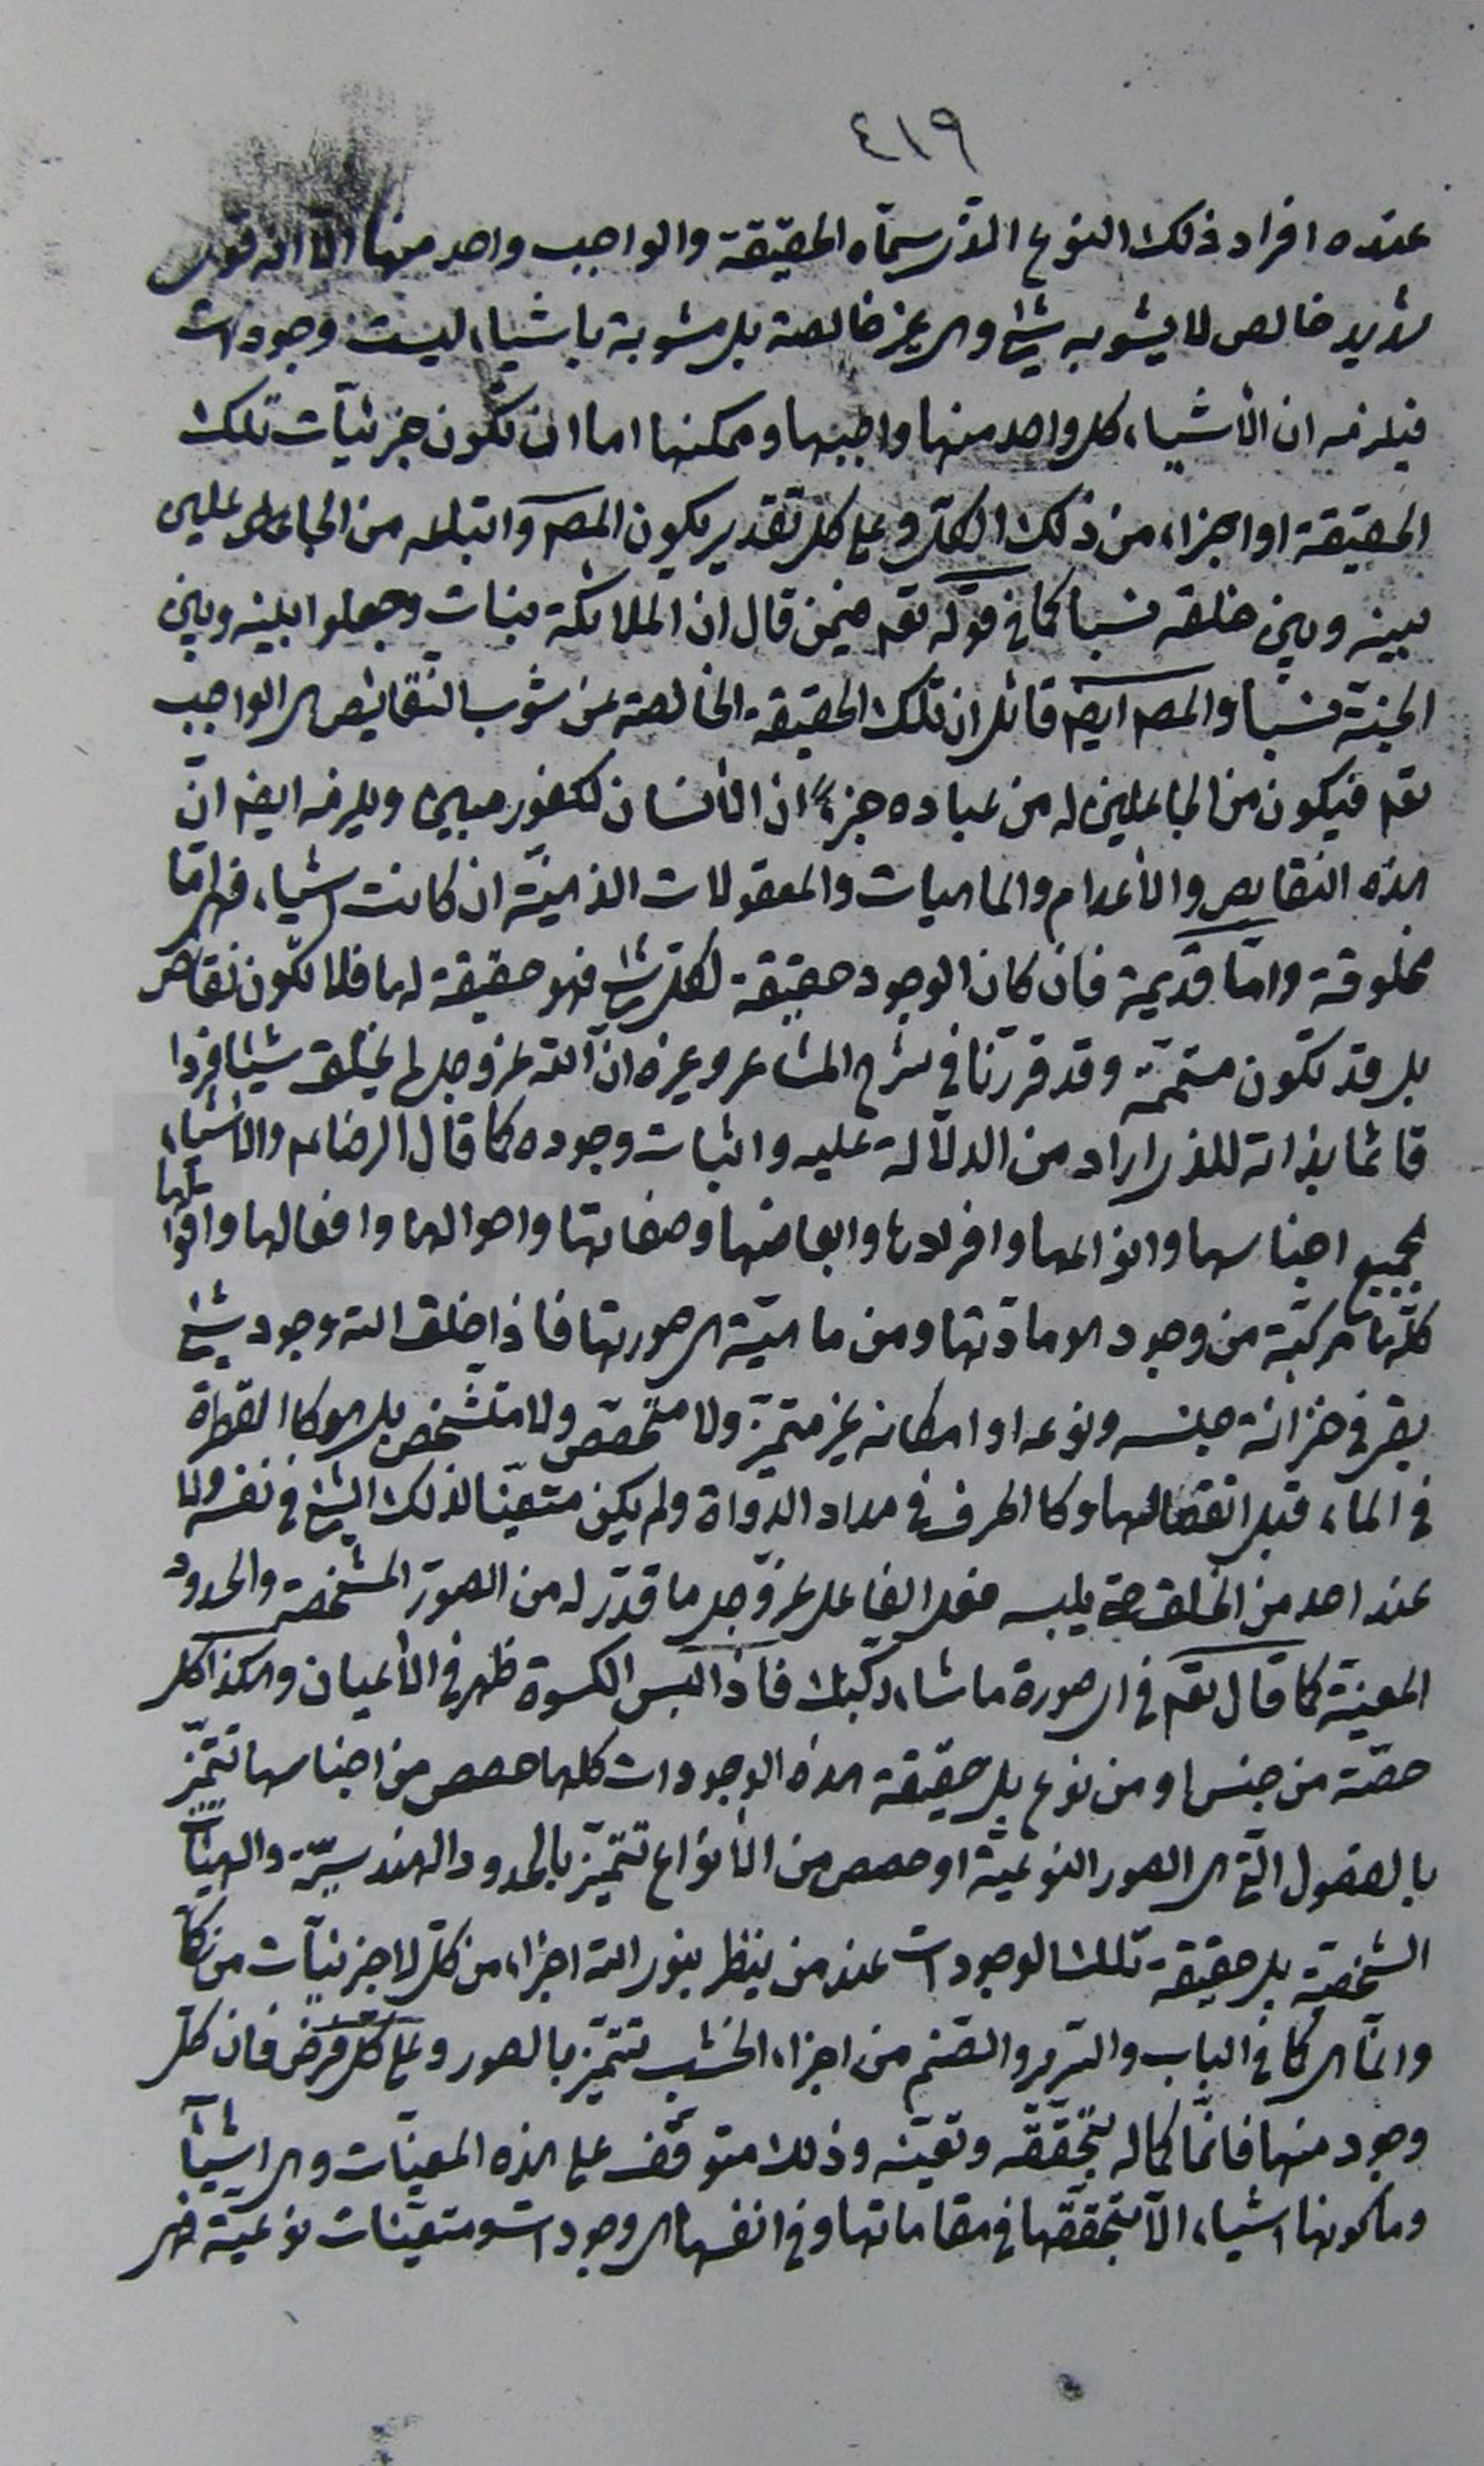 ٤١٩
عنده افراد ذلك النوع الذى سمّاه الحقيقة والواجب واحد منها الّا انه قوى
شديد خالص لا يشوبه شئ وهى غير خالصة بل مشوبة باشياء ليست وجودات
فيلزمه ان الأشياء كل واحد منها واجبها وممكنها اما ان تكون جزئيّات تلك
الحقيقة او اجزاء من ذلك الكلّ وعلى كل تقدير يكون المصـ واتباعه من الجاعلين
بينه وبين خلقه نسبا كما فى قوله تعـ فيمن قال ان الملائكة بنات وجعلوا بينه وبين
الجنّة نسبا والمصـ ايضـ قائل ان تلك الحقيقة الخالصة عن شوب النّقائص هى الواجب
تعـ فيكون من الجاعلين له من عباده جزءًا ان الأنسان لكفور مبين ويلزمه ايضـ انّ
هذه النقايص والأعدام والماهيات والمعقولات الذهنيّة ان كانت اشياء فهى امّا
مخلوقة وامّا قديمة فان كان الوجود حقيقة لكلّ شئ فهو حقيقة لها فلا تكون نقائص
بل قد تكون متممّة وقد قررنا فى شرح المشاعر وغيره انّ اللّه عزوجل لم يخلق شيئا فردا
قائما بذاته للذى اراد من الدلالة عليه واثبات وجوده كما قال الرضا عـ والأشياء
بجميع اجناسها وانواعها وافرادها وابعاضها وصفاتها واحوالها وافعالها واقوالها
كلّها مركبّة من وجود هو مادّتها ومن ماهيّة هى صورتها فاذا خلق اللّه وجود شئ
بقى فى خزانة جنسه ونوعه او امكانه غير متميّز ولا متخصّص ولا متشخّص بل هو كالقطرة
فى الماء قبل انفصالها وكالحرف فى مداد الدّواة ولم يكن متعيّنا لذلك الشئ فى نفسه ولا
عند احد من الخلق حتى يلبسه فعل الفاعل عزّوجل ما قدّر له من الصّور المشخّصة والحدود
المعينة كما قال تعـ فى اى صورة ما شاء ركّبك فاذا البس الكسوة ظهر فى الأعيان وهكذا كل
حصّة من جنس او من نوع بل حقيقة هذه الوجودات كلها حصص من اجناسها تتميّز
بالفصول الّتى هى الصور النوعيّة او حصص من الأنواع تتميّز بالحدود الهندسيّة والهيئات
الشخصيّة بل حقيقة تلك الوجودات عند من ينظر بنور اللّه اجزاء من كلّ لا جزئيّات من كلّى
وانّما هى كما فى الباب والسّرير والصّنم من اجزاء الخشب تتميّز بالصور وعلى كل فرض فان كلّ
وجود منها فانّما كماله بتحقّقه وتعيّنه وذلك متوقّف على هذه المعيّنات وهى اشياء
وما كونها اشياء الّا بتحقّقها فى مقاماتها وفى انفسها هى وجودات ومتعيّنات نوعيّة